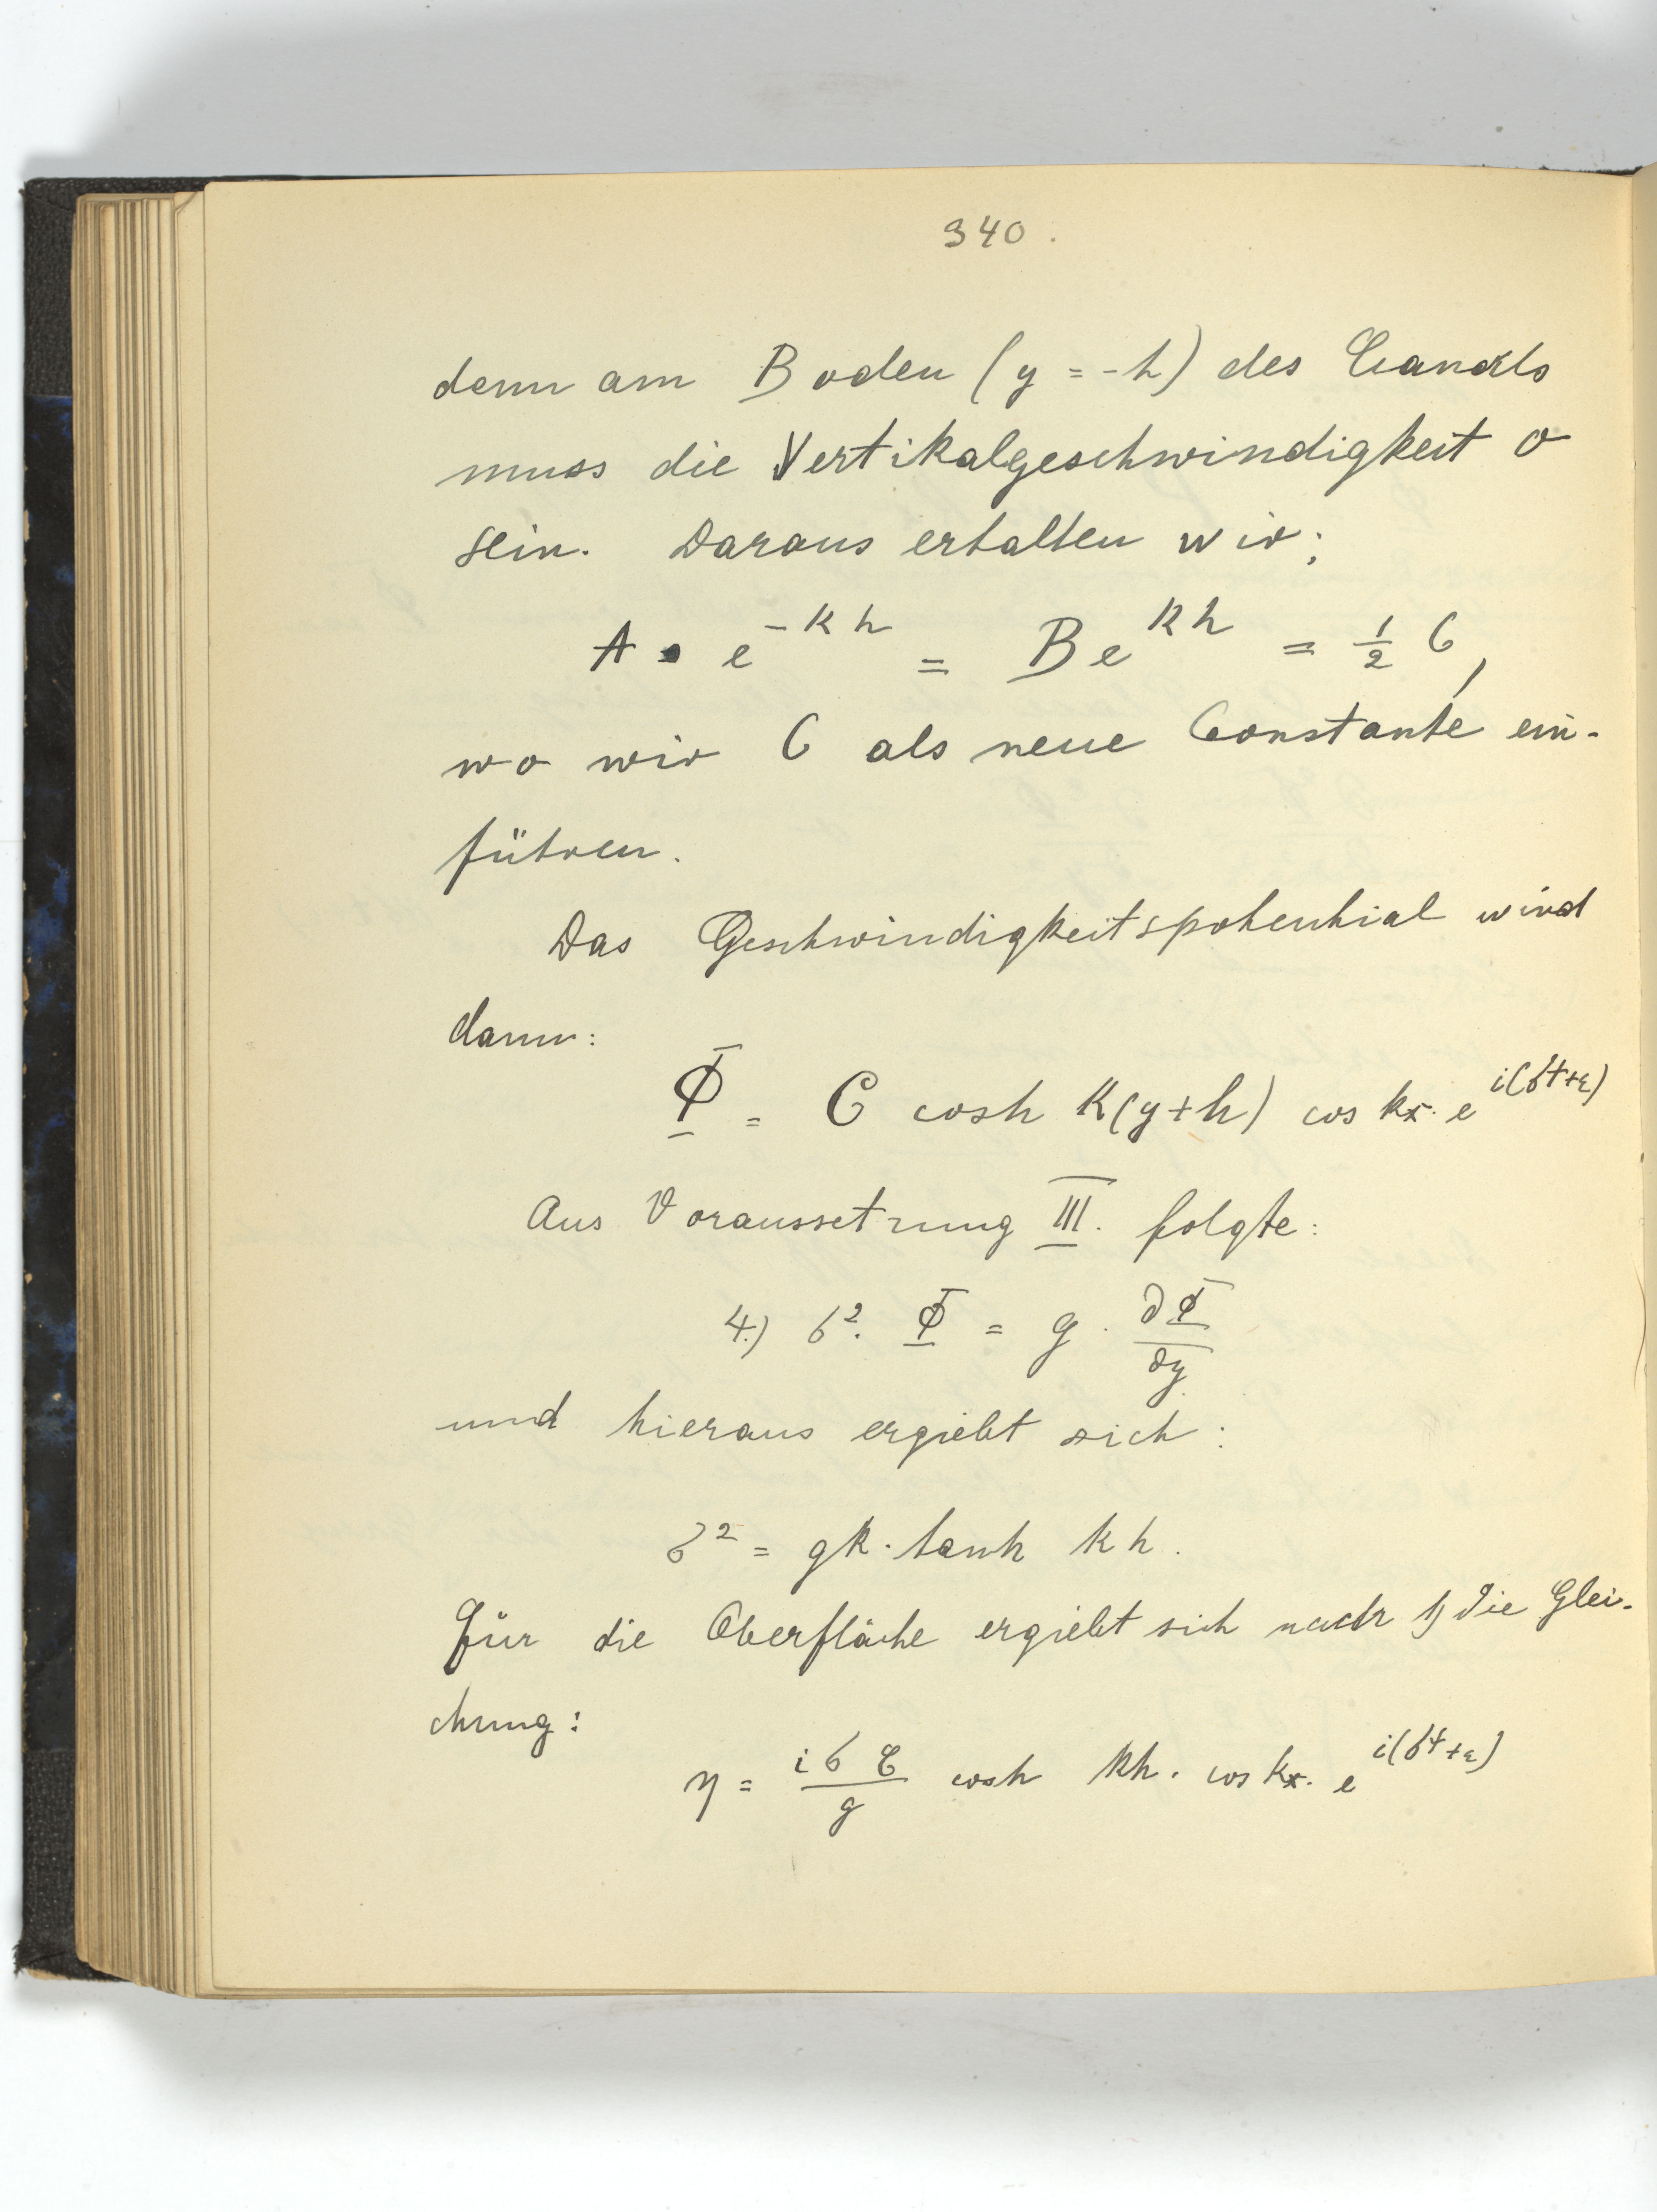 340.
denn am Boden (y = -h) des Canals
muss die Vertikalgeschwindigkeit 0
sein. Daraus erhalten wir:
A · e^{-kh} = B e^{kh} = 1/2 C,
wo wir C als neue Constante ein-
führen.
Das Geschwindigkeitspotential wird
dann:
Φ = C cosh k(y+h) cos kx · e^{i(σt+ε)}
Aus Voraussetzung III. folgte:
4.) σ². Φ = g · ∂Φ/∂y
und hieraus ergiebt sich:
σ² = gk · tanh kh.
Für die Oberfläche ergiebt sich nach 1) die Glei-
chung:
η = iσC/g cosh kh · cos kx · e^{i(σt+ε)}